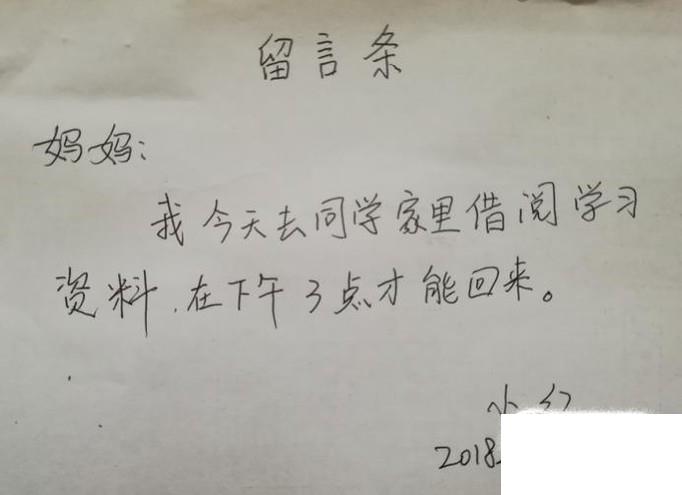 留言条
妈妈:
我今天去同学家里借阅学习
资料,在下午3点才能回来。
小
2018